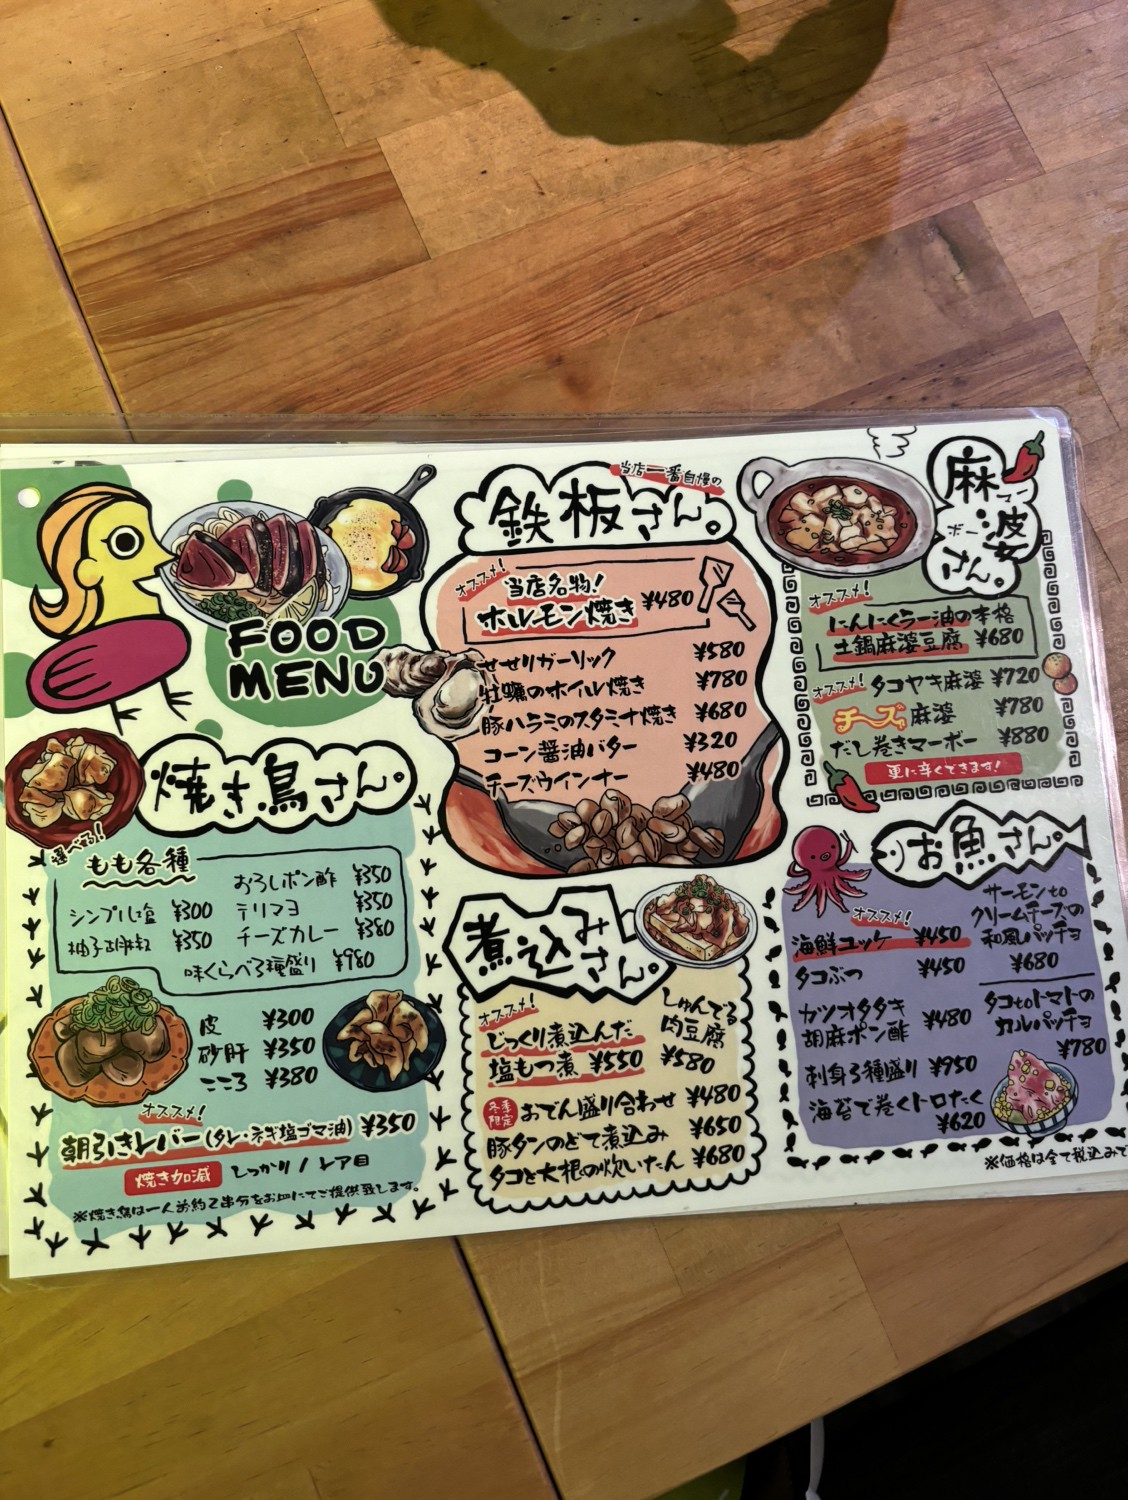 FOOD
MENU
焼き鳥さん。
選べる!
もも各種
シンプル塩 ¥300
柚子胡椒 ¥350
おろしポン酢 ¥350
テリマヨ ¥350
チーズカレー ¥380
味くらべ3種盛り ¥980
皮 ¥300
砂肝 ¥350
こころ ¥380
オススメ!
朝引きレバー(タレ・ネギ塩ゴマ油) ¥350
焼き加減 しっかり / レア目
※焼き鳥は一人前約2串分をお皿にてご提供致します。
当店一番自慢の
鉄板さん。
オススメ!
当店名物!
ホルモン焼き ¥480
せせりガーリック ¥580
牡蠣のホイル焼き ¥780
豚ハラミのスタミナ焼き ¥680
コーン醤油バター ¥320
チーズウインナー ¥480
煮込みさん。
オススメ!
じっくり煮込んだ
塩もつ煮 ¥550
しゅんでる
肉豆腐
¥580
冬季限定 おでん盛り合わせ ¥480
豚タンのどて煮込み ¥650
タコと大根の炊いたん ¥680
麻マー婆ボーさん。
オススメ!
にんにくラー油の本格
土鍋麻婆豆腐 ¥680
オススメ! タコヤキ麻婆 ¥720
チーズ麻婆 ¥780
だし巻きマーボー ¥880
更に辛くできます!
お魚さん。
オススメ!
海鮮ユッケ ¥450
タコぶつ ¥450
カツオタタキ
胡麻ポン酢 ¥480
刺身3種盛り ¥950
海苔で巻くトロたく
¥620
サーモンto
クリームチーズの
和風パッチョ
¥680
タコtoトマトの
カルパッチョ
¥780
※価格は全て税込みで